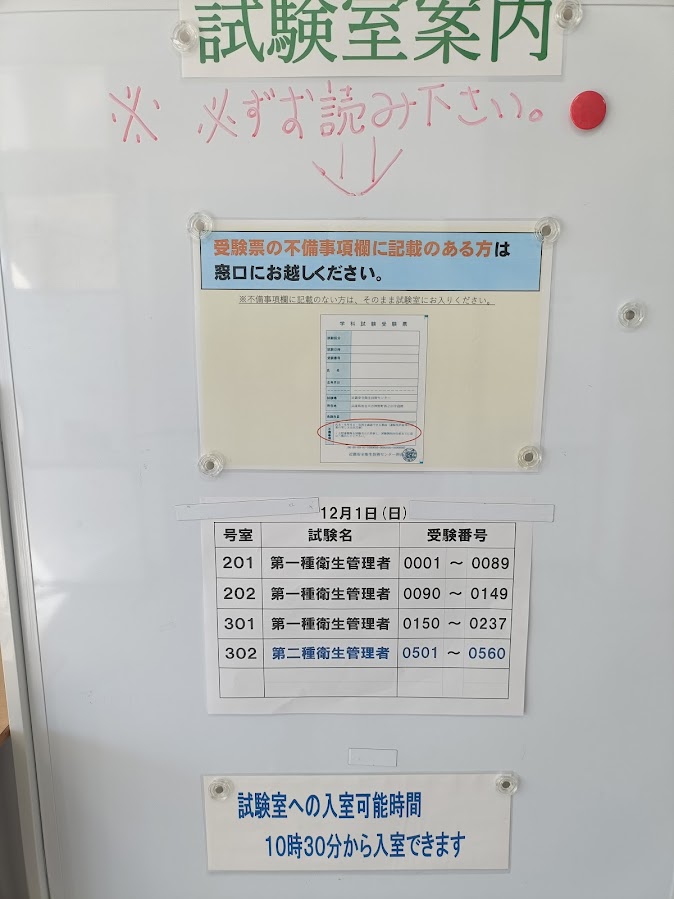 試験室案内
※ 必ずお読み下さい。
受験票の不備事項欄に記載のある方は
窓口にお越しください。
※不備事項欄に記載のない方は、そのまま試験室にお入りください。
学科試験受験票
12月1日(日)
号室 試験名 受験番号
201 第一種衛生管理者 0001 ～ 0089
202 第一種衛生管理者 0090 ～ 0149
301 第一種衛生管理者 0150 ～ 0237
302 第二種衛生管理者 0501 ～ 0560
試験室への入室可能時間
10時30分から入室できます